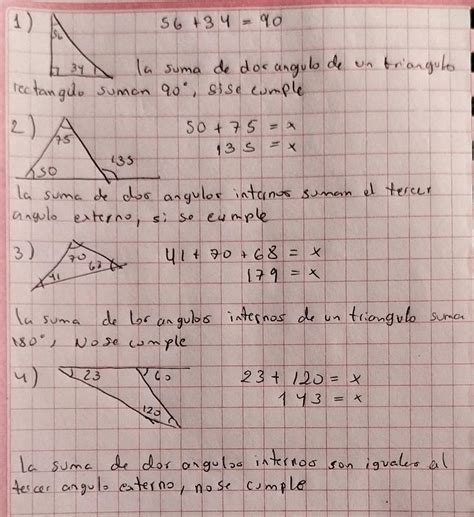 1) 56 34 56 + 34 = 90
la suma de dos angulo de un triangulo
rectangulo suman 90°, si se cumple
2) 75 50 135 50 + 75 = x
135 = x
la suma de dos angulos internos suman el tercer
angulo externo, si se cumple
3) 70 41 68 41 + 70 + 68 = x
179 = x
la suma de los angulos internos de un triangulo suma
180°, No se cumple
4) 23 60 120 23 + 120 = x
143 = x
La suma de dos angulos internos son iguales al
tercer angulo externo, no se cumple